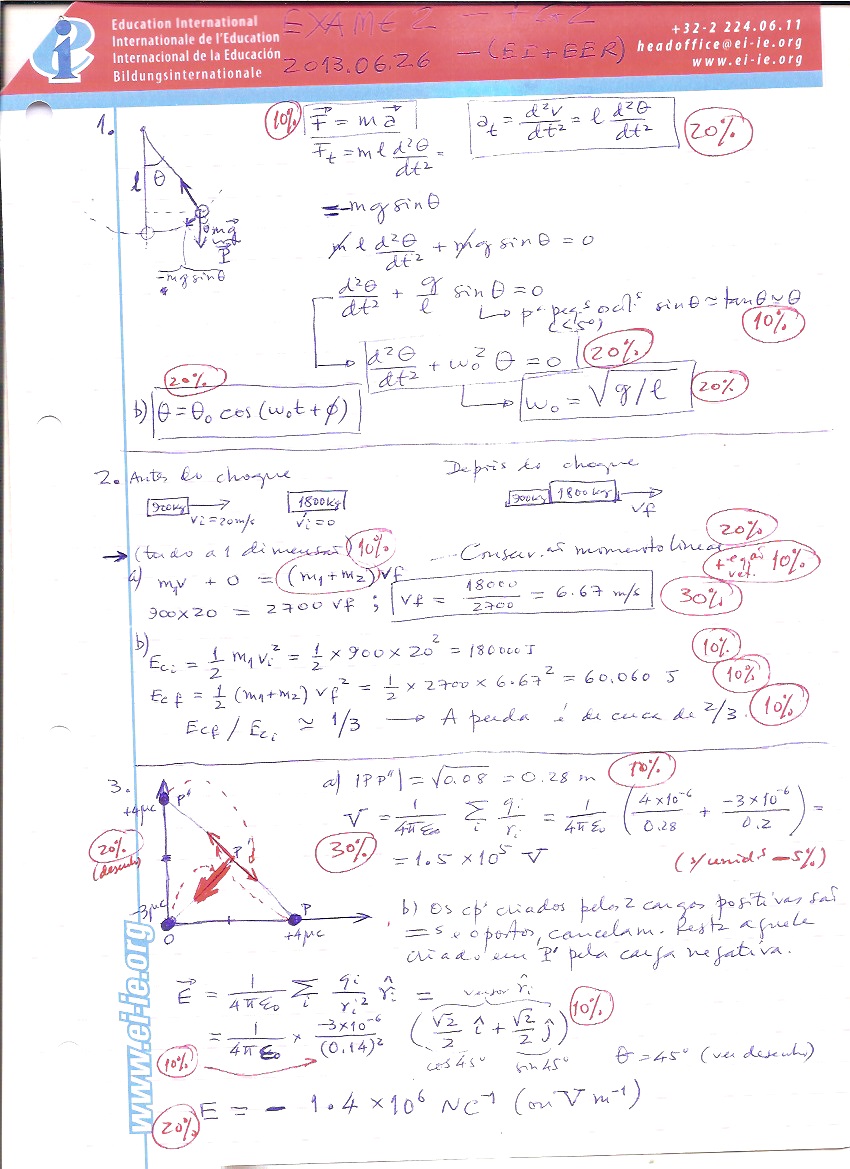 Education International
Internationale de l'Education
Internacional de la Educación
Bildungsinternationale
EXAME 2 - FG2
2013.06.26 - (EI + EER)
+32-2 224.06.11
headoffice@ei-ie.org
www.ei-ie.org
1.
10% F⃗ = m a⃗
a_t = d²v/dt² = l d²θ/dt² 20%
F_t = m l d²θ/dt² =
= -mg sinθ
l θ
mg⃗
P⃗
-mg sinθ
m l d²θ/dt² + mg sinθ = 0
d²θ/dt² + g/l sinθ = 0
↳ pª peq.s oscil.s sinθ ≈ tanθ ≈ θ
(<5°) 10%
d²θ/dt² + ω₀² θ = 0 20%
ω₀ = √g/l 20%
20%
b) θ = θ₀ cos(ω₀t + ϕ)
2. Antes do choque
Depois do choque
900kg 1800kg
vi = 20m/s vi = 0
900kg 1800kg
vf
→ (tudo a 1 dimensão) 10% Conserv. momento linear 20%
+ eqção vet. 10%
a) m₁v + 0 = (m₁+m₂)vf
900×20 = 2700 vf ; vf = 18000/2700 = 6.67 m/s 30%
b)
Eci = 1/2 m₁vi² = 1/2 × 900 × 20² = 180000 J 10%
Ecf = 1/2 (m₁+m₂) vf² = 1/2 × 2700 × 6.67² = 60.060 J 10%
Ecf / Eci ≃ 1/3 → A perda é de cerca de 2/3. 10%
3.
P"
+4μC
20%
(desenho)
P'
-3μC
O
P
+4μC
a) |PP"| = √0.08 = 0.28 m 10%
V = 1/4πε₀ Σi qi/ri = 1/4πε₀ (4×10⁻⁶/0.28 + -3×10⁻⁶/0.2) =
30% = 1.5 × 10⁵ V (s/ unids -5%)
b) Os cpºs criados pelas 2 cargas positivas são
=s e opostos, cancelam. Resta aquele
criado em P' pela carga negativa.
E⃗ = 1/4πε₀ Σi qi/ri² r̂i = versor r̂i
= 1/4πε₀ × -3×10⁻⁶/(0.14)² (√2/2 î + √2/2 ĵ) 10%
10%
cos45° sin45° θ = 45° (ver desenho)
20% E = - 1.4 × 10⁶ NC⁻¹ (ou V m⁻¹)
www.ei-ie.org